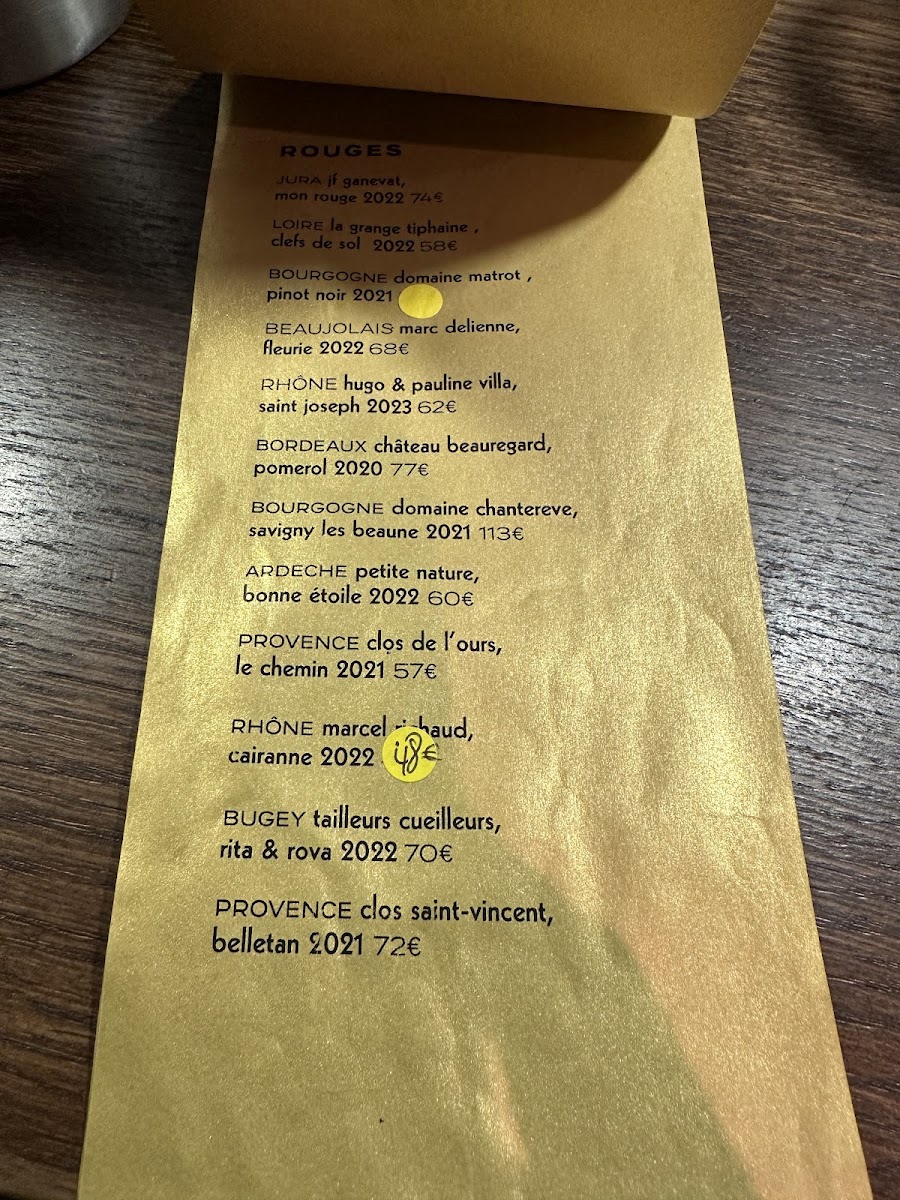 ROUGES
JURA jf ganevat,
mon rouge 2022 74€
LOIRE la grange tiphaine ,
clefs de sol 2022 58€
BOURGOGNE domaine matrot ,
pinot noir 2021
BEAUJOLAIS marc delienne,
fleurie 2022 68€
RHÔNE hugo & pauline villa,
saint joseph 2023 62€
BORDEAUX château beauregard,
pomerol 2020 77€
BOURGOGNE domaine chantereve,
savigny les beaune 2021 113€
ARDECHE petite nature,
bonne étoile 2022 60€
PROVENCE clos de l'ours,
le chemin 2021 57€
RHÔNE marcel richaud,
cairanne 2022 48€
BUGEY tailleurs cueilleurs,
rita & rova 2022 70€
PROVENCE clos saint-vincent,
belletan 2021 72€